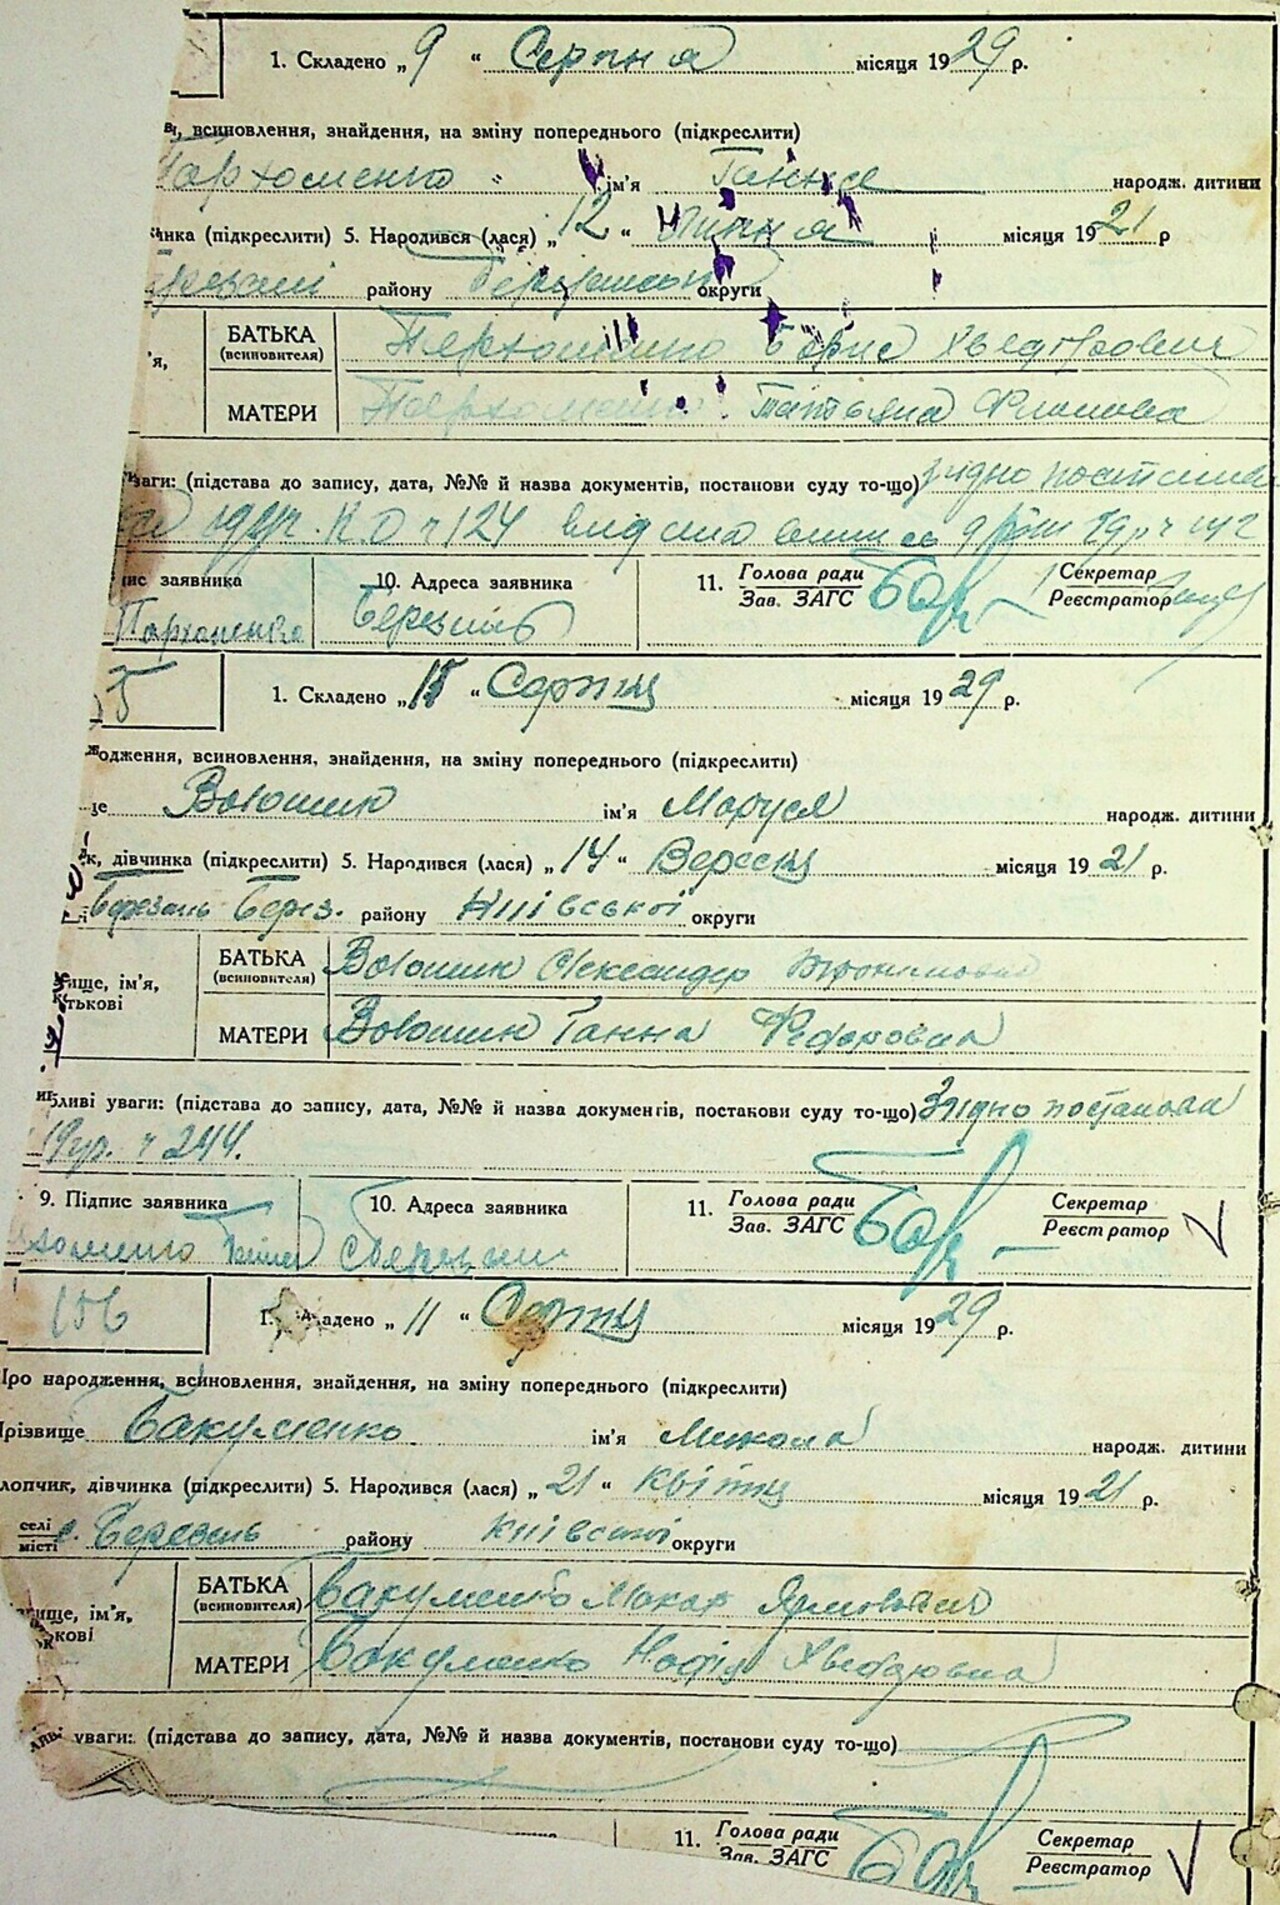 1. Складено „ 9 " Серпня місяця 1929 р.
ві, всиновлення, знайдення, на зміну попереднього (підкреслити)
Пархоменко ім'я Ганна народж. дитини
инка (підкреслити) 5. Народився (лася) „ 12 " липня місяця 1921 р
району округи
БАТЬКА Пархоменко Борис Хведорович
(всиновителя)
'я,
МАТЕРИ Пархоменко Татьяна
ваги: (підстава до запису, дата, №№ й назва документів, постанови суду то-що) згідно
124
ис заявника 10. Адреса заявника 11. Голова ради Секретар
Зав. ЗАГС Реєстратор
Пархоменко Березань
5 1. Складено „ 15 " Серпня місяця 1929 р.
одження, всиновлення, знайдення, на зміну попереднього (підкреслити)
ще Волошин ім'я Маруся народж. дитини
к, дівчинка (підкреслити) 5. Народився (лася) „ 14 " Вересня місяця 1921 р.
Березань Берез. району Київської округи
БАТЬКА Волошин Олександер
(всиновителя)
ище, ім'я,
тькові
МАТЕРИ Волошин Ганна Федоровна
бливі уваги: (підстава до запису, дата, №№ й назва документів, постанови суду то-що) Згідно постанови
ч 244.
9. Підпис заявника 10. Адреса заявника 11. Голова ради Секретар
Зав. ЗАГС Реєстратор
Березань
156 1. Складено „ 11 " Серпня місяця 1929 р.
Про народження, всиновлення, знайдення, на зміну попереднього (підкреслити)
Прізвище Бакуменко ім'я Микола народж. дитини
лопчик, дівчинка (підкреслити) 5. Народився (лася) „ 21 " Квітня місяця 1921 р.
селі
місті с. Березань району Київської округи
БАТЬКА Бакуменко Макар
(всиновителя)
ище, ім'я,
кові
МАТЕРИ Бакуменко Надія
уваги: (підстава до запису, дата, №№ й назва документів, постанови суду то-що)
11. Голова ради Секретар
Зав. ЗАГС Реєстратор